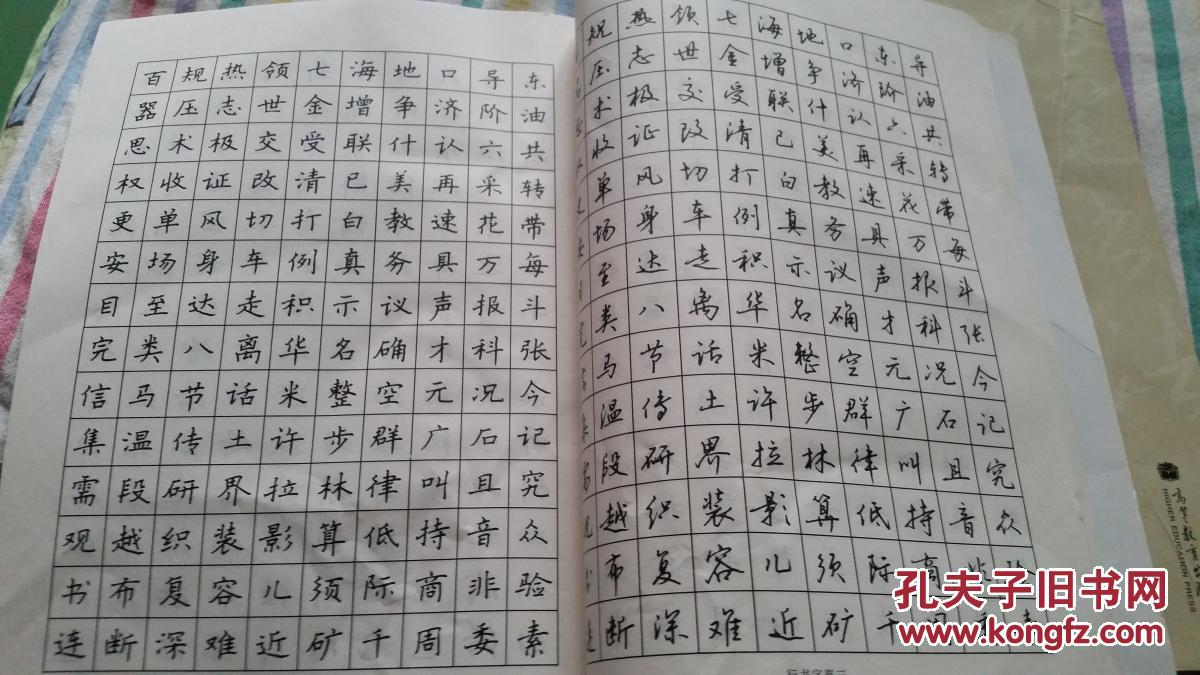 百规热领七海地口导东
器压志世金增争济阶油
思术极交受联什认六共
权收证改清已美再采转
更单风切打白教速花带
安场身车例真务具万每
目至达走积示议声报斗
完类八离华名确才科张
信马节话米整空元况今
集温传土许步群广石记
需段研界拉林律叫且究
观越织装影算低持音众
书布复容儿须际商非验
连断深难近矿千周委素
规热领七海地口东导
压志世金增争济阶油
术极交受联什认六共
收证改清已美再采转
单风切打白教速花带
场身车例真务具万每
至达走积示议声报斗
类八离华名确才科张
马节话米整空元况今
温传土许步群广石记
段研界拉林律叫且究
越织装影算低持音众
布复容儿须际商非验
断深难近矿千
高等教育
HIGHER EDUCATION PRESS
孔夫子旧书网
www.kongfz.com